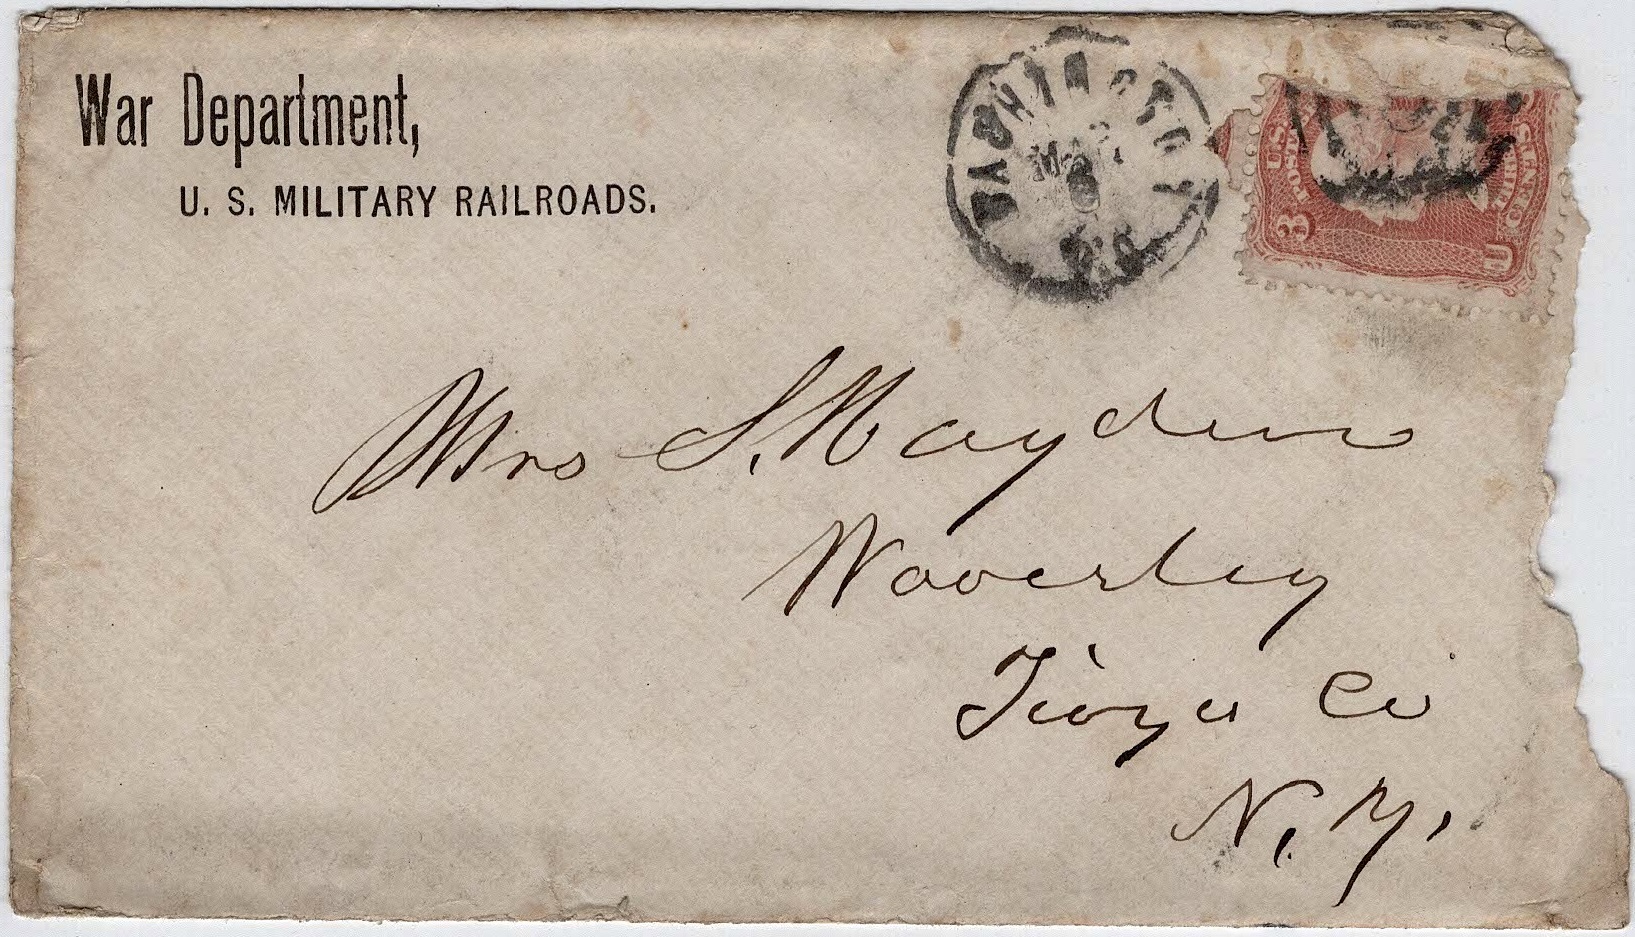 War Department,
U. S. MILITARY RAILROADS.
WASHINGTON
D.C.
U.S. POSTAGE
THREE CENTS
3 U
Mrs S. Hayden
Waverley
Tioga Co
N. Y.